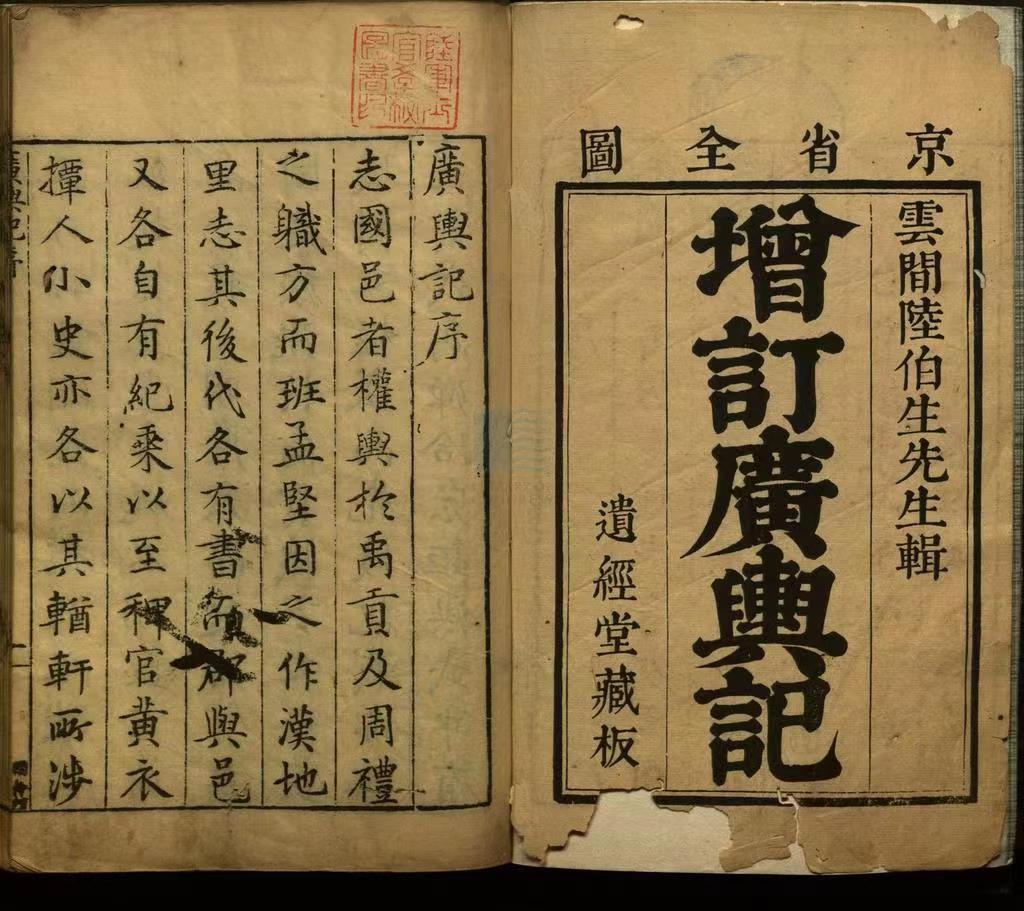 京省全圖
雲間陸伯生先生輯
增訂廣輿記
遺經堂藏板
廣輿記序
志國邑者權輿於禹貢及周禮
之職方而班孟堅因之作漢地
里志其後代各有書而郡與邑
又各自有紀乘以至稗官黃衣
撢人小史亦各以其輶軒所涉
廣輿記序